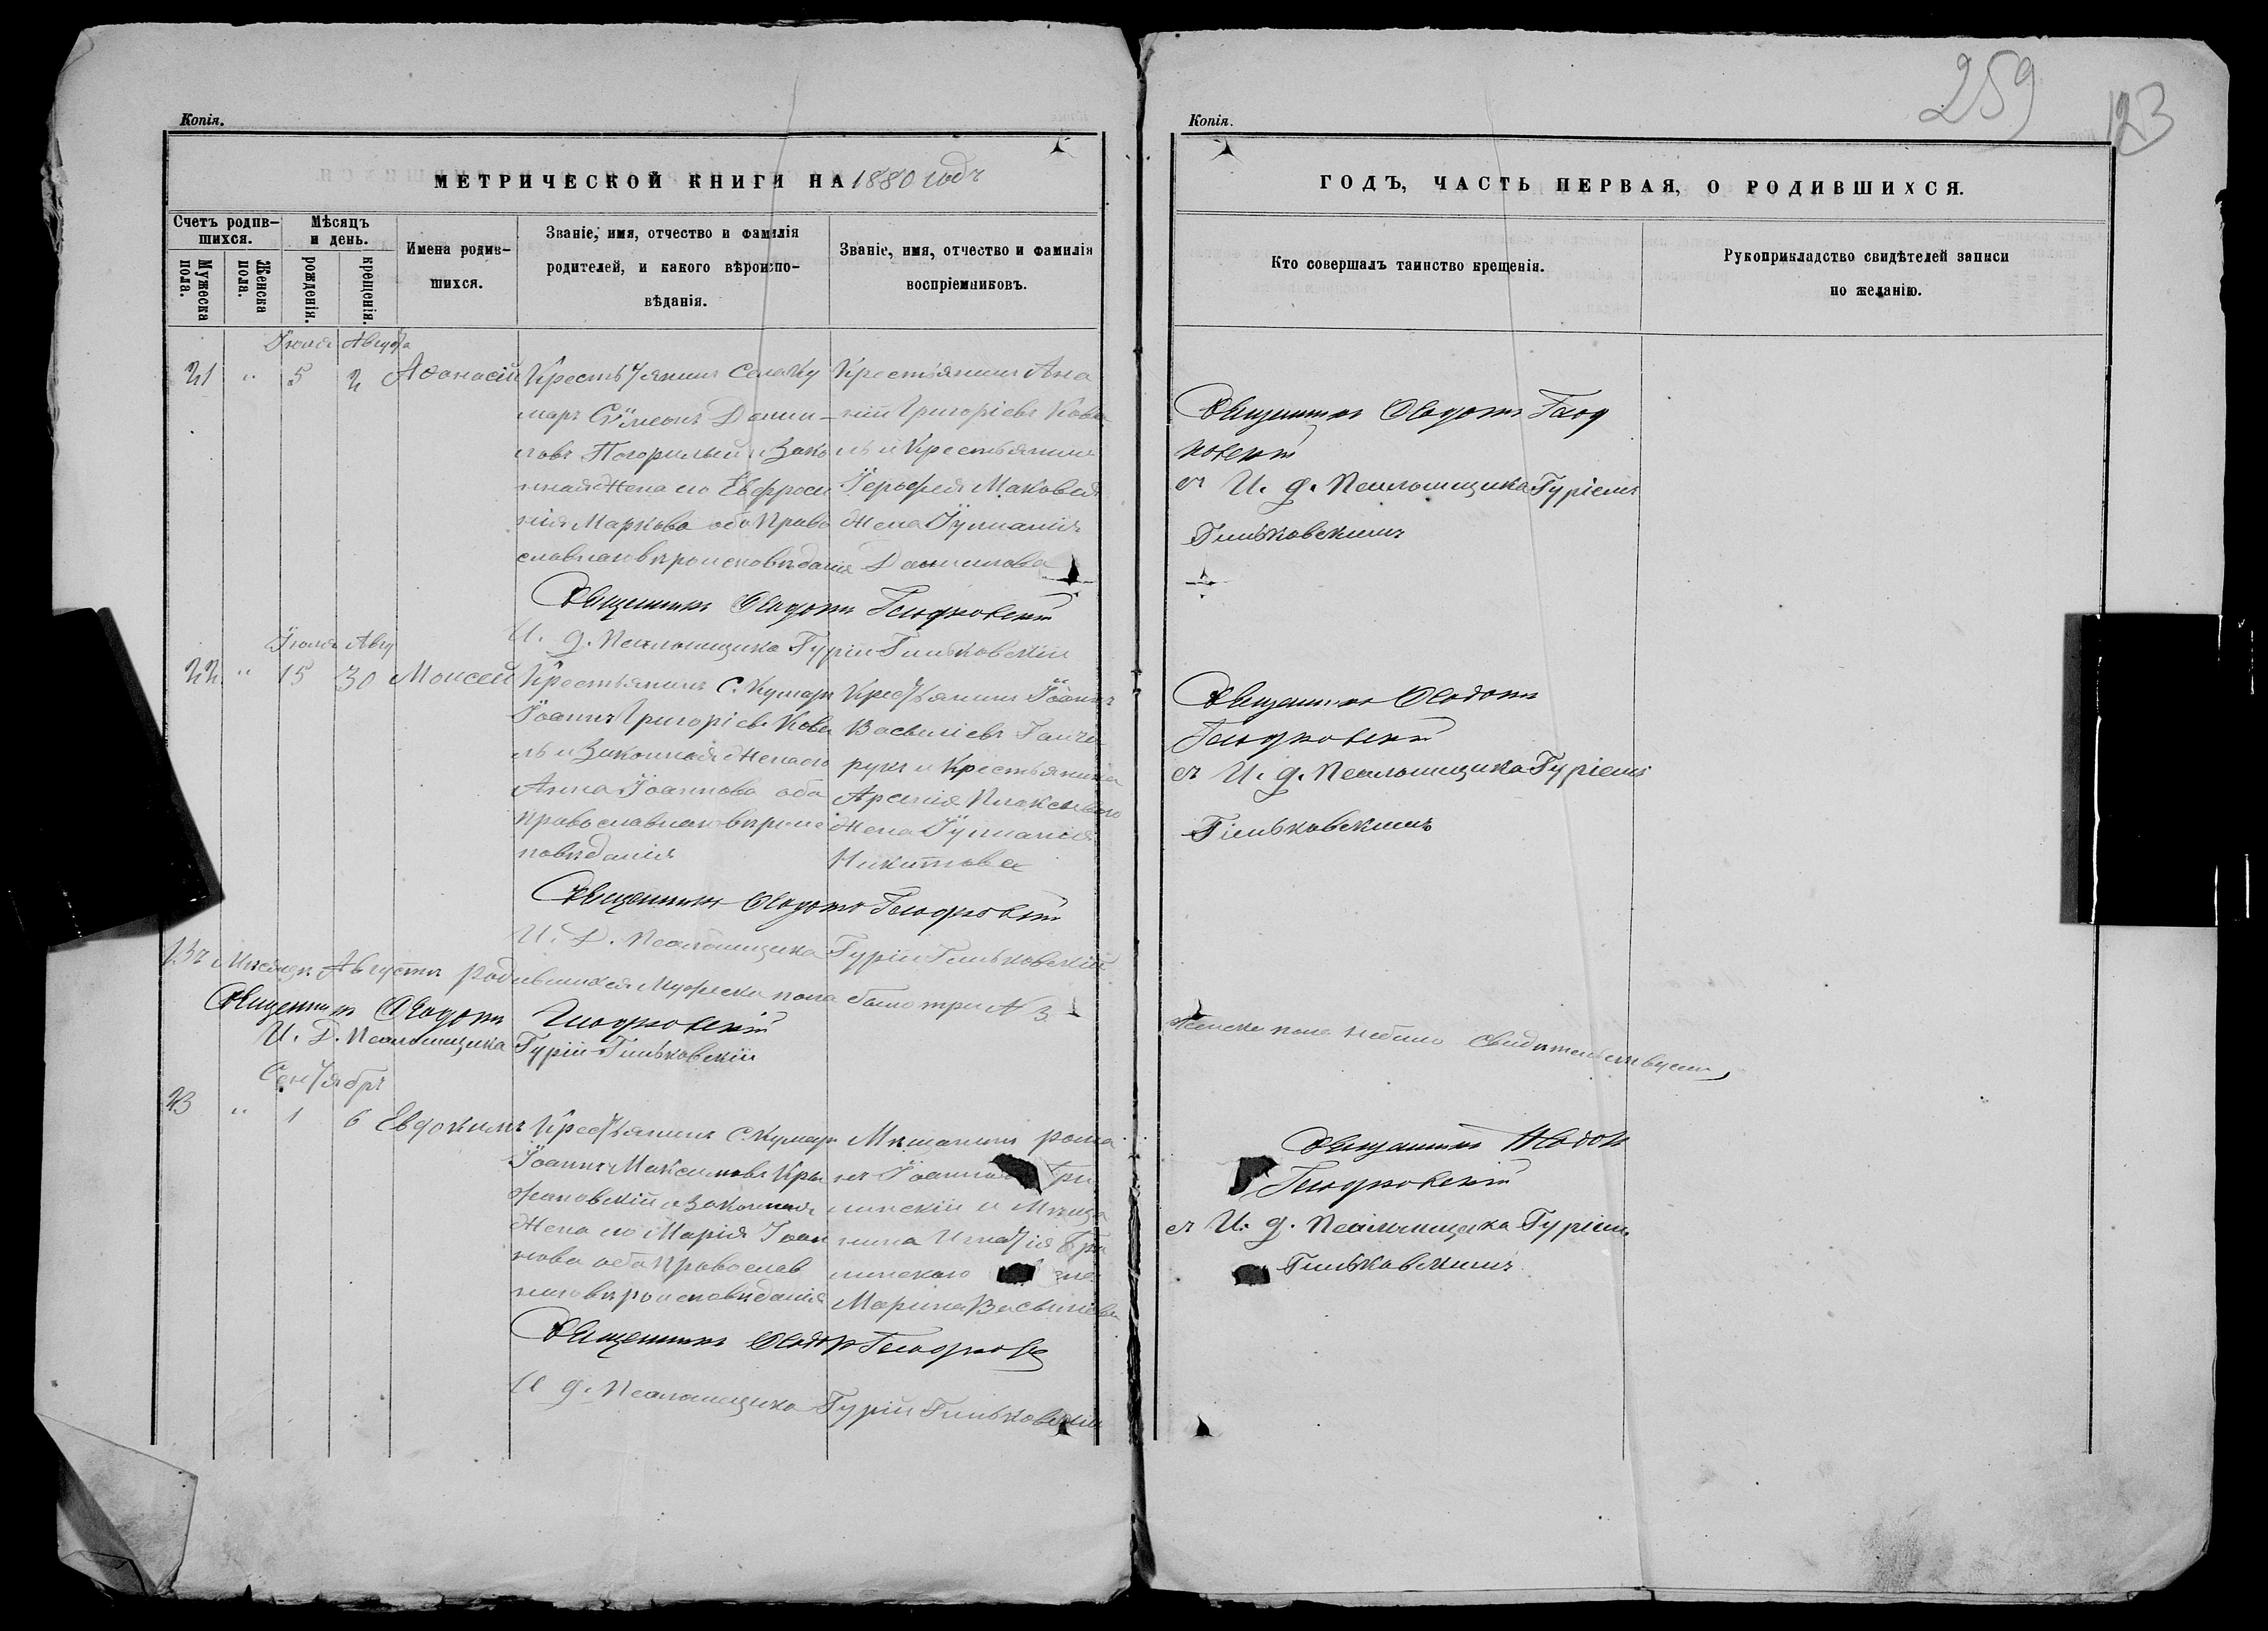 Копія.
МЕТРИЧЕСКОЙ КНИГИ НА 1880 годъ
Счетъ родив-
шихся.
Мужеска пола.
Женска пола.
Мѣсяцъ
и день.
рожденія.
крещенія.
Имена родив-
шихся.
Званіе, имя, отчество и фамилія
родителей, и какого вѣроиспо-
вѣданія.
Званіе, имя, отчество и фамилія
воспріемниковъ.
Іюля Августа
21 " 5 2 Афанасій
Крестьянинъ Села Ку
маръ Сѵмеонъ Дани-
ловъ Погорилый и Зако
нная Жена его Евфроси
нія Маркова оба Право
славнаго вѣроисповѣданія
Крестьянинъ Ана
ній Григоріевъ Кова
ль и Крестьянина
Іерофея Маковея
Жена Іуліанія
Данилова
Священникъ Ѳеодотъ
И. д. Псаломщика Гурій Гиньковскій
Іюля Авгу
22 " 15 30 Моисей
Крестьянинъ С. Кумаръ
Іоаннъ Григоріевъ Кова
ль и Законная Жена его
Анна Іоаннова оба
православнаго вѣроис
повѣданія
Крестьянинъ Іоаннъ
Васыліевъ
рукъ и Крестьянина
Арсенія
Жена Іуліанія
Никитова
Священникъ Ѳеодотъ
И. Д. Псаломщика Гурій Гиньковскій
Въ Мѣсяцѣ Августѣ родившихся Мужеска пола было три № 3
Священникъ Ѳеодотъ
И. Д. Псаломщика Гурій Гиньковскій
Сентябръ
23 " 1 6 Евдокимъ
Крестьянинъ С. Кумаръ
Іоаннъ Максимовъ Кры
жановскій и Законная
Жена его Марія Іоан
нова оба Православ
наго вѣроисповѣданія
Мѣщанинъ рома
нъ Іоанновъ
и Мѣща
нина Игнатія

Марина Васыліева
Священникъ
И д. Псаломщика Гурій Гиньковскій
259
123
Копія.
ГОДЪ, ЧАСТЬ ПЕРВАЯ, О РОДИВШИХСЯ.
Кто совершалъ таинство крещенія.
Рукоприкладство свидѣтелей записи
по желанію.
Священникъ Ѳеодотъ
съ И. д. Псаломщика Гуріемъ
Гиньковскимъ
Священникъ Ѳеодотъ
съ И. д. Псаломщика Гуріемъ
Гиньковскимъ
Женска пола небыло Свидѣтельствуемъ
Священникъ
съ И. д. Псаломщика Гуріемъ
Гиньковскимъ